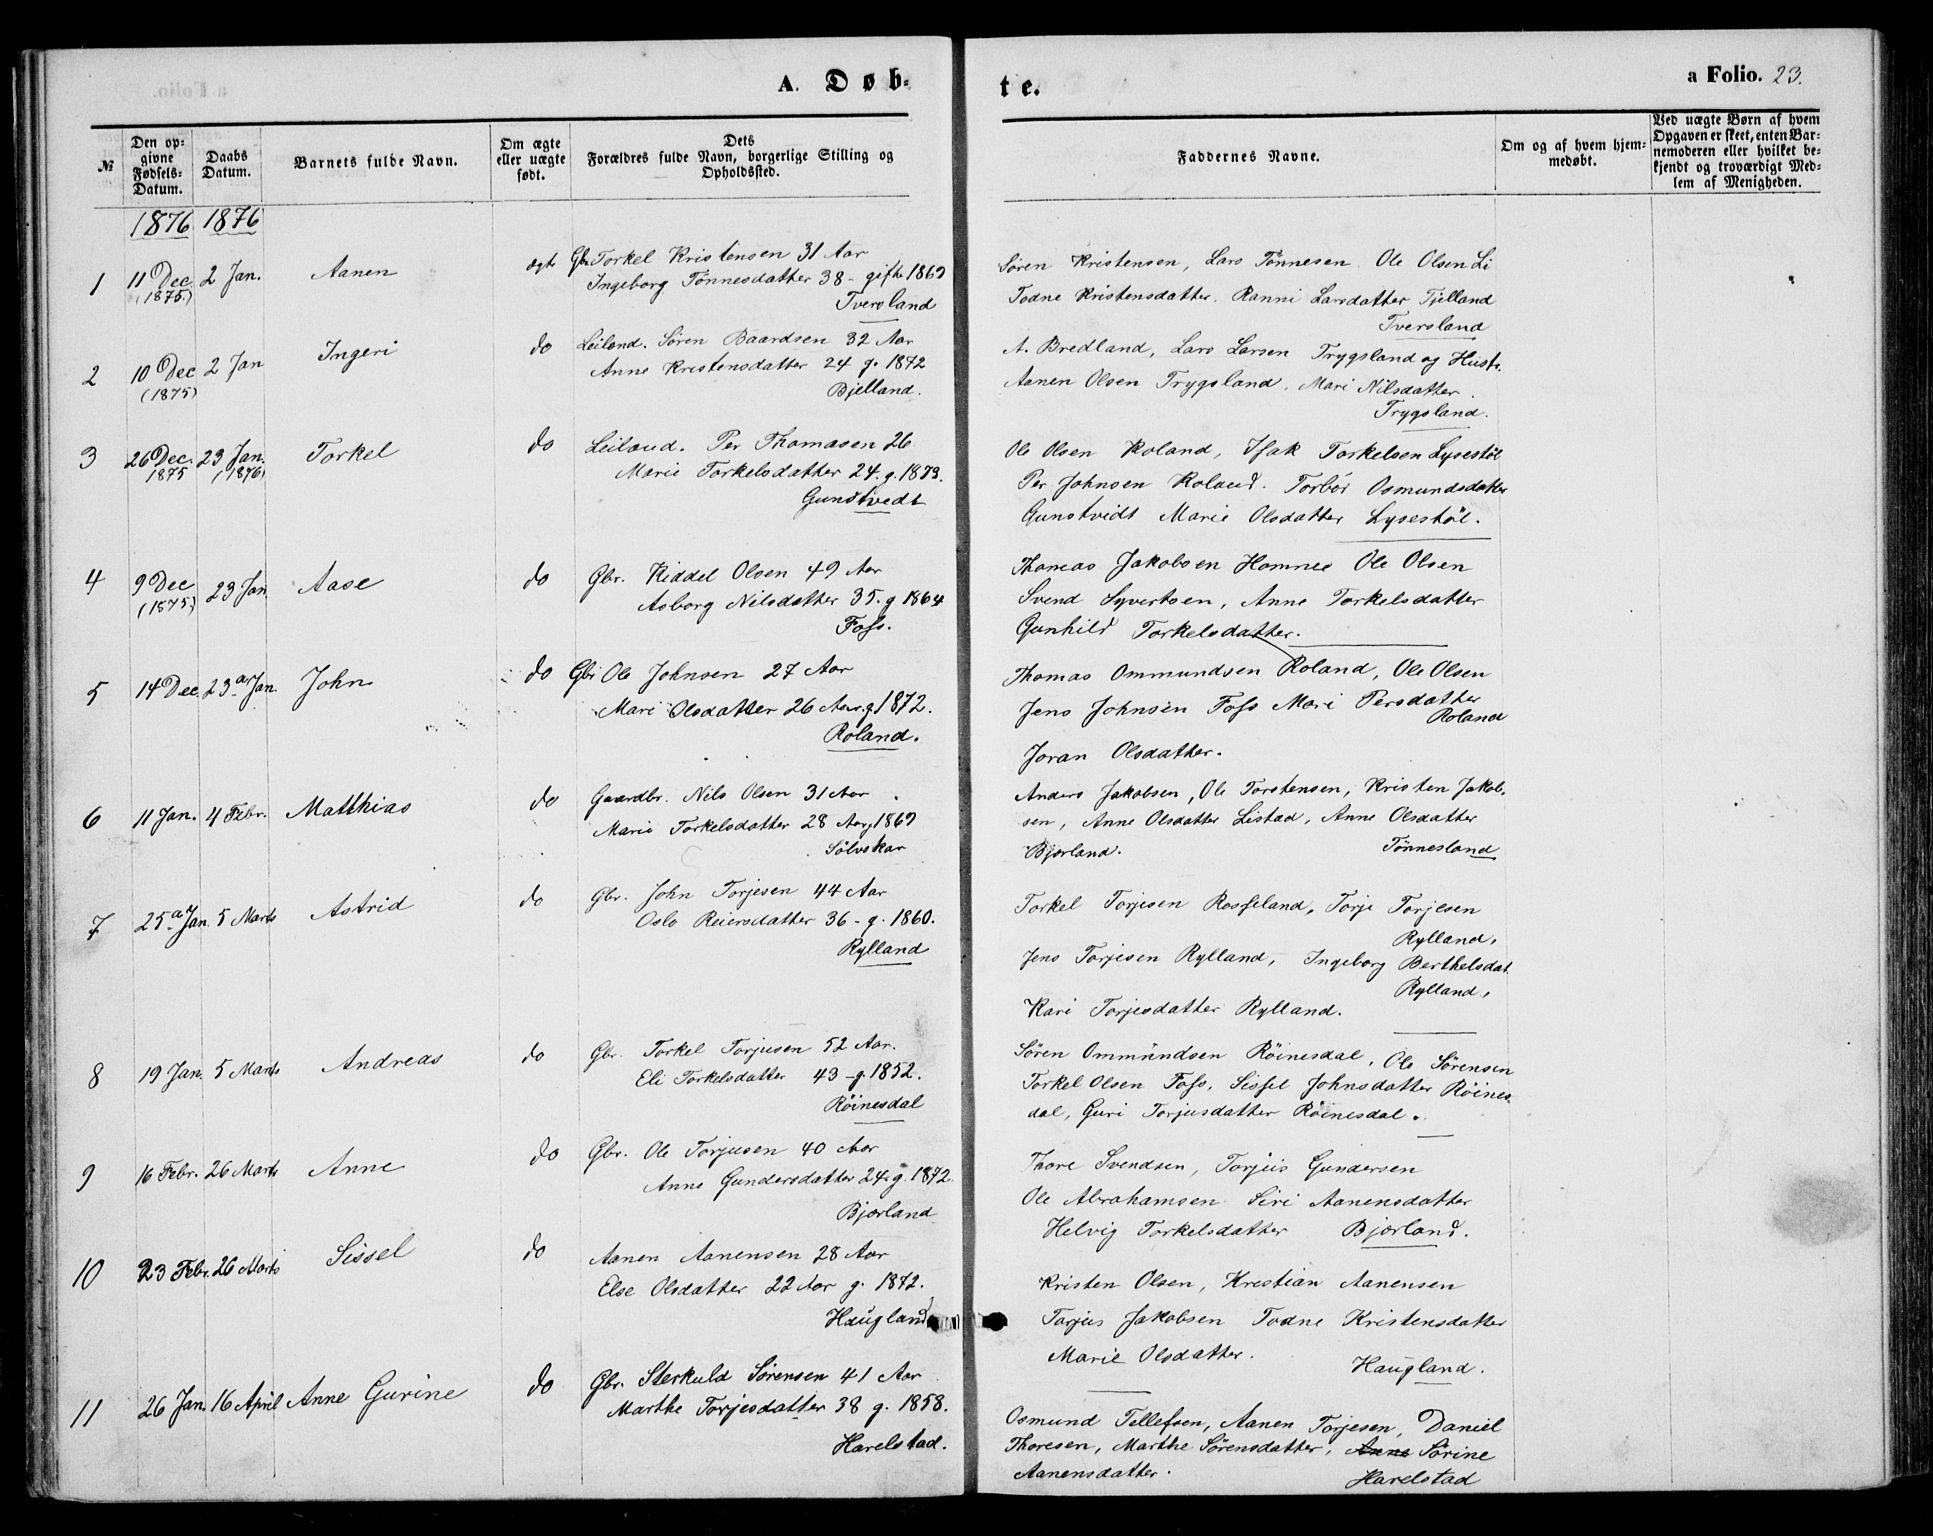 A. Døb-
te.
a Folio. 23.
№
Den op-
givne
Fødsels-
Datum.
Daabs
Datum.
Barnets fulde Navn.
Om ægte
eller uægte
født.
Dets
Forældres fulde Navn, borgerlige Stilling og
Opholdssted.
Faddernes Navne.
Om og af hvem hjem-
medøbt.
Ved uægte Børn af hvem
Opgaven er skeet, enten Bar-
nemoderen eller hvilket be-
kjendt og troværdigt Med-
lem af Menigheden.
1876 1876
1 11 Dec (1875) 2 Jan. Aanen ægte
Gbr. Torkel Kristensen 31 Aar
Ingeborg Tønnesdatter 38 - gift 1869
Tversland
Søren Kristensen, Lars Tønnesen Ole Olsen Li
Todne Kristensdatter. Ranni Larsdatter Tjelland
Tversland
2 10 Dec (1875) 2 Jan Ingeri do
Leilænd. Søren Baardsen 32 Aar
Anne Kristensdatter 24 g. 1872
Bjelland.
A. Bredland, Lars Larsen Trygsland og Hustr.
Aanen Olsen Trygsland. Mari Nilsdatter.
Trygsland.
3 26 Dec. 1875 23 Jan. (1876) Torkel do
Leilænd. Per Thomasen 26
Marie Torkelsdatter 24. g. 1873.
Gunstvedt
Ole Olsen Roland, Isak Torkelsen Lysestøl
Per Johnsen Roland. Torbør Osmundsdatter
Gunstvedt Marie Olsdatter Lysestøl.
4 9 Dec (1875) 23 Jan Aase do
Gbr. Kiddel Olsen 49 Aar
Asborg Nilsdatter 35. g 1864
Foss.
Thomas Jakobsen Homnee Ole Olsen
Svend Syvertsen, Anne Torkelsdatter
Gunhild Torkelsdatter.
5 14 Dec. 23 ar Jan. John do
Gbr Ole Johnsen 27 Aar
Mari Olsdatter 26 Aar. g. 1872.
Roland.
Thomas Ommundsen Roland, Ole Olsen
Jens Johnsen Foss Mari Persdatter
Roland
Joran Olsdatter.
6 11 Jan. 4 Febr. Matthias do
Gaardbr. Nils Olsen 31 Aar
Marie Torkelsdatter 28 Aar g 1869
Sølvskar
Anders Jakobsen, Ole Torstensen, Kristen Jakob-
sen, Anne Olsdatter Listad, Anne Olsdatter
Bjørland. Tønnesland
7 25 a Jan. 5 Marts Astrid do
Gbr. John Torjesen 44 Aar
Oslo Reiersdatter 36 - g. 1860.
Rylland
Torkel Torjesen Rosseland, Torje Torjesen
Rylland,
Jens Torjesen Rylland, Ingeborg Berthelsdat.
Rylland,
Kari Torjesdatter Rylland.
8 19 Jan. 5 Marts Andreas do
Gbr. Torkel Torjusen 52 Aar.
Eli Torkelsdatter 43 - g. 1852.
Röinesdal
Søren Ommundsen Röinesdal, Ole Sørensen
Torkel Olsen Foss, Sissel Johnsdatter Röines-
dal, Guri Torjusdatter Röinesdal.
9 16 Febr. 26 Marts Anne do
Gbr. Ole Torjusen 40 Aar
Anne Gundersdatter 24. g. 1872.
Bjørland
Thore Svendsen, Torjus Gundersen
Ole Abrahamsen Siri Aanensdatter
Helvig Torkelsdatter Bjørland.
10 23 Febr. 26 Marts Sissel do
Aanen Aanensen 28 Aar
Else Olsdatter 22 Aar g. 1872.
Haugland
Kristen Olsen, Kristian Aanensen
Torjus Jakobsen Todne Kristensdatter
Marie Olsdatter. Haugland.
11 26 Jan. 16 April Anne Gurine do
Gbr. Sterkuld Sørensen 41 Aar
Marthe Torjesdatter 38 g. 1858.
Harelstad.
Osmund Tellefsen, Aanen Torjesen, Daniel
Thoresen, Marthe Sørensdatter, Anne Sørine
Aanensdatter. Harelstad